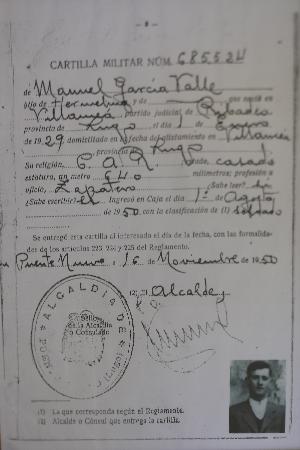 - 8 -
CARTILLA MILITAR NÚM. 685524
de Manuel García Valle
hijo de Hermelina y de — que nació en
Villameá, partido judicial de Ribadeo
provincia de Lugo, el día 1 de Enero
de 1929 domiciliado en la fecha del alistamiento en Villameá
, provincia de Lugo
Su religión, C. A. R. estado, casado
estatura, un metro 640 milímetros; profesión u
oficio, Zapatero ¿Sabe leer? si
¿Sabe escribir? si Ingresó en Caja el día 1º de Agosto
de 1950 con la clasificación de (1) Soldado
Se entregó esta cartilla al interesado el día de la fecha, con las formalida-
des de los artículos 223, 224 y 225 del Reglamento.
En Puente Nuevo a 16 de Noviembre de 1950
(2) El Alcalde,
Sello
de la Alcaldía
o Consulado
ALCALDIA DE
(1) La que corresponda según el Reglamento.
(2) Alcalde o Cónsul que entrega la cartilla.